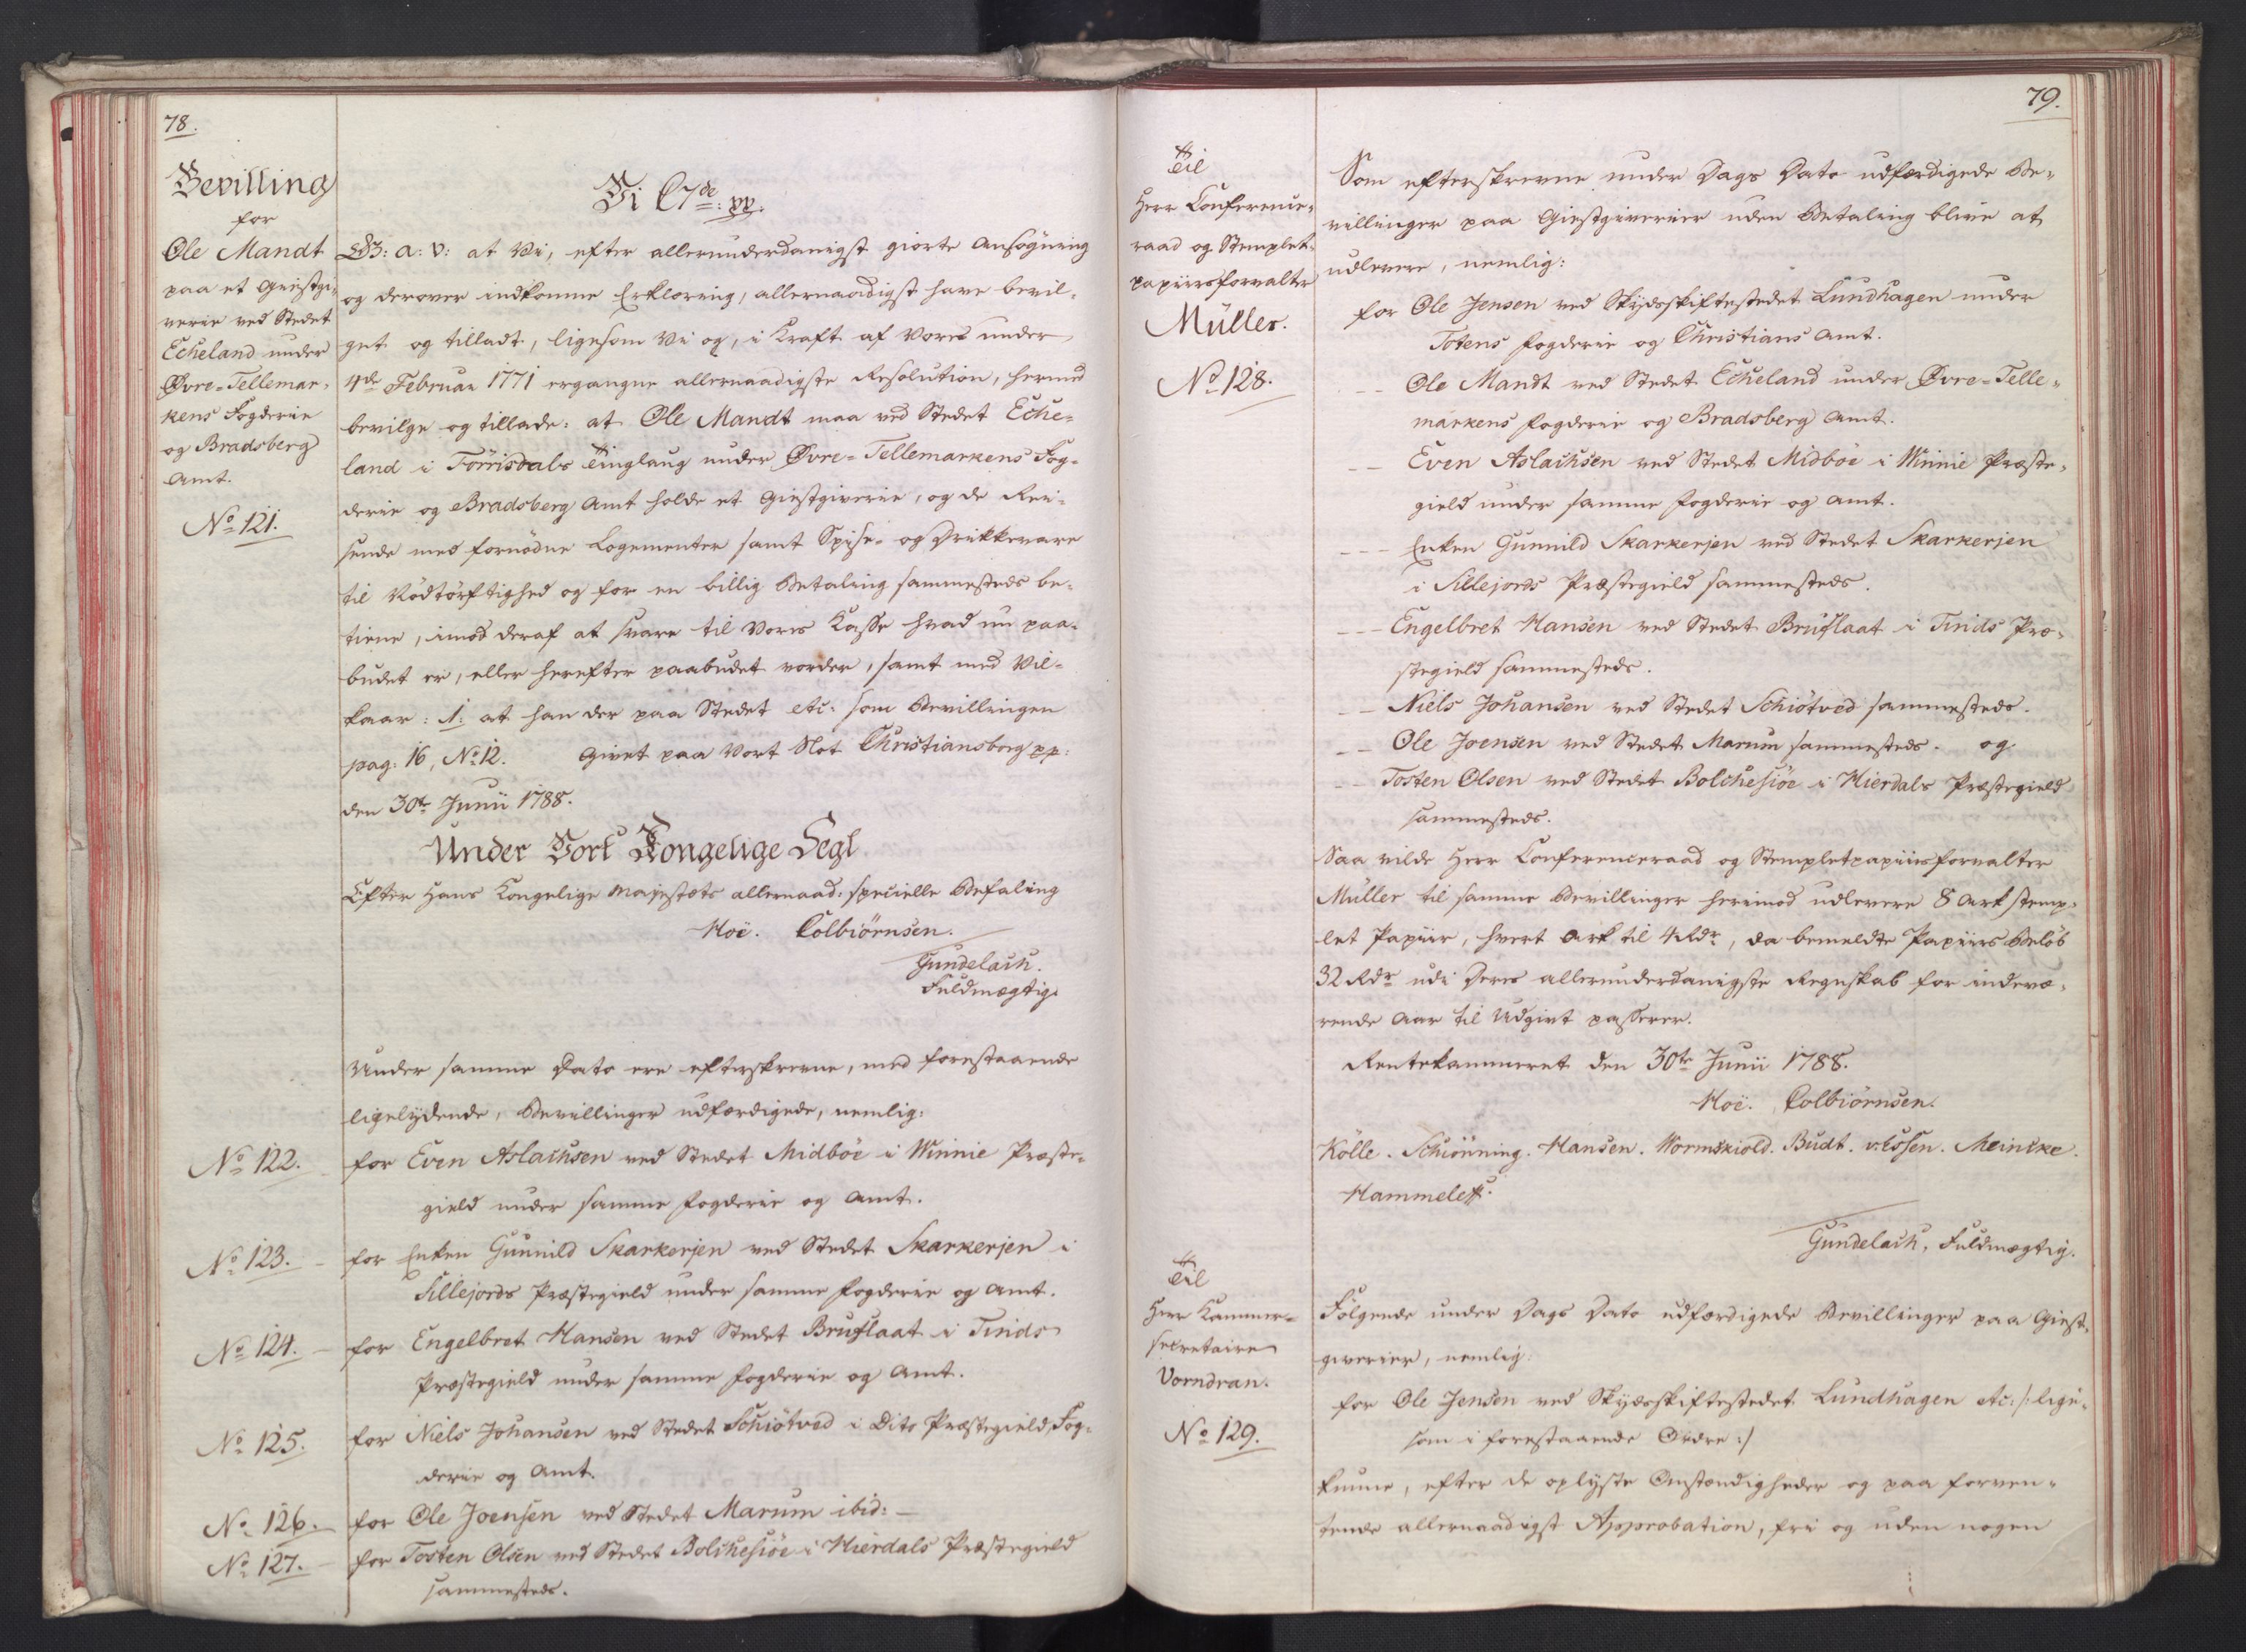 78.
Bevilling
for
Ole Mandt
paa et Giestgi-
verie ved Stedet
Echeland under
Øvre-Tellemar-
kens Fogderie
og Bradsberg
Amt.
No 121.
Vi C 7de: pp.
G: a: v: at Vi, efter allerunderdanigst giorte Ansøgning
og derover indkomne Erklæring, allernaadigst have bevil-
get og tilladt, ligesom Vi og, i Kraft af Vores under
4de Februar 1771 ergangne allernaadigste Resolution, hermed
bevilge og tillade: at Ole Mandt maa ved Stedet Eche-
land i Törrisdals Tinglaug under Øvre-Tellemarkens Fog-
derie og Bradsberg Amt holde et Giestgiverie, og de Rei-
sende med fornödne Logementer samt Spise- og Drikkevare
til Nödtörftighed og for en billig Betaling sammesteds be-
tiene, imod deraf at svare til Vores Kasse hvad nu paa-
budet er, eller herefter paabudet vorder, samt med Vil-
kaar: 1: at han der paa Stedet etc: som Bevillingen
pag: 16, No 12. Givet paa Vort Slot Christiansborg pp:
den 30te Junii 1788.
Under Vort Kongelige Segl
Efter Hans Kongelige Majestæts allernaad: specielle Befaling
Moe. Colbiörnsen.
Gundelach.
Fuldmægtig.
Under samme Dato ere efterskrevne, med forestaaende
ligelydende, Bevillinger udfærdigede, nemlig:
No 122. for Even Aslachsen ved Stedet Midböe i Winnie Præste-
gield under samme Fogderie og Amt.
No 123. – for Enken Gunnild Skarkerjen ved Stedet Skarkerjen i
Sillejords Præstegield under samme Fogderie og Amt.
No 124. – for Engelbret Hansen ved Stedet Bruflaat i Tinds
Præstegield under samme Fogderie og Amt.
No 125. for Niels Johansen ved Stedet Schiötved i Dito Præstegield, Fog-
derie og Amt.
No 126. for Ole Joensen ved Stedet Marum ibid: –
No 127. – for Tosten Olsen ved Stedet Bolchesiöe i Hierdals Præstegield
sammesteds.
79.
Til
Herr Conference-
raad og Stemplet-
papiirsforvalter
Müller.
No 128.
Som efterskrevne under Dags Dato udfærdigede Be-
villinger paa Giestgiverier uden Betaling blive at
udlevere, nemlig:
for Ole Jensen ved Skydsskiftestedet Lundhagen under
Totens Fogderie og Christians Amt.
-- Ole Mandt ved Stedet Echeland under Øvre-Telle-
markens Fogderie og Bradsberg Amt.
-- Even Aslachsen ved Stedet Midböe i Winnie Præste-
gield under samme Fogderie og Amt.
--- Enken Gunnild Skarkerjen ved Stedet Skarkerjen
i Sillejords Præstegield sammesteds.
--- Engelbret Hansen ved Stedet Bruflaat i Tinds Præ-
stegield sammesteds.
-- Niels Johansen ved Stedet Schiötved sammesteds.
-- Ole Joensen ved Stedet Marum sammesteds. og
-- Tosten Olsen ved Stedet Bolchesiöe i Hierdals Præstegield
sammesteds.
Saa vilde Herr Conferenceraad og Stempletpapiirsforvalter
Müller til samme Bevillinger herimod udlevere 8 Ark stemp-
let Papiir, hvert Ark til 4 Rdr, da bemeldte Papiirs Belöb
32 Rdr udi Deres allerunderdanigste Regnskab for indevæ-
rende Aar til Udgivt passerer.
Rentekammeret den 30te Junii 1788.
Moe. Colbiörnsen.
Kölle. Schiönning. Hansen. Wormskiold. Budt. v: Essen. Meincke.
Hammeleff.
Gundelach, Fuldmægtig.
Til
Herr Kammer-
secretaire
Vorndran.
No 129.
Fölgende under Dags Dato udfærdigede Bevillinger paa Giest-
giverier, nemlig:
for Ole Jensen ved Skydsskiftestedet Lundhagen etc: /: lige-
som i forestaaende Ordre :/
kunne, efter de oplyste Omstændigheder og paa forven-
tende allernaadigst Approbation, frie og uden nogen